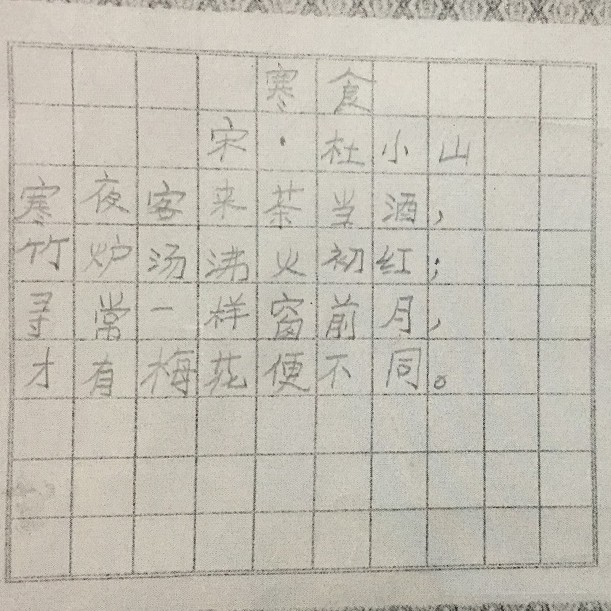 寒食
宋·杜小山
寒夜客来茶当酒，
竹炉汤沸火初红；
寻常一样窗前月，
才有梅花便不同。